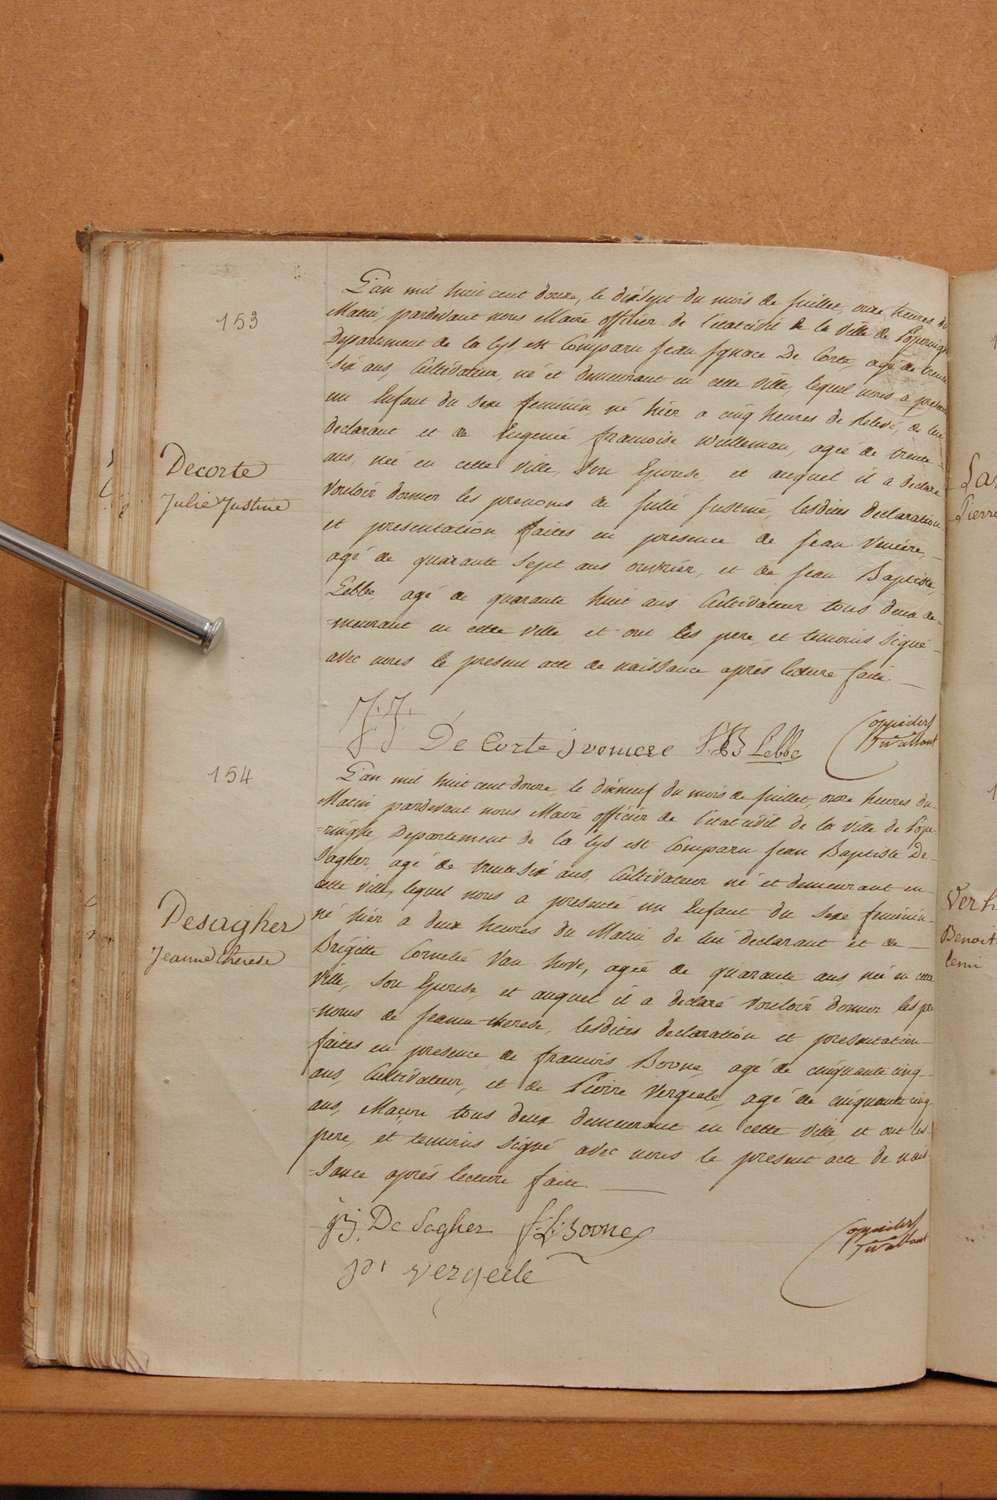 153
Decorte
Julie Justine
L'an mil huit cent douze, le dixsept du mois de juillet, onze heures du
Matin, pardevant nous Maire officier de l'état civil de la ville de Poperinghe
Departement de la Lys est Comparu Jean Ignace De Corte, agé de trente
-six ans, Cultivateur, né et demeurant en cette ville, lequel nous a presenté
un Enfant du sexe feminin, né hier a cinq heures de Relevé, de lui
declarant et de Eugenie francoise Wulleman, agée de trente-
ans, née en cette ville, son Epouse, et auquel il a declaré
Vouloir donner les prenoms de Julie Justine, lesdites declaration
et presentation faites en presence de Jean
agé de quarante sept ans ouvrier, et de Jean Baptiste
Lebbe, agé de quarante huit ans Cultivateur tous deux de-
-meurant en cette ville et ont les pere, et temoins signé
avec nous le present acte de naissance après lecture faite
J: J: De Corte j vomere J: B Lebbe
154
Desagher
Jeanne therese
L'an mil huit cent douze, le dixneuf du mois de juillet, onze heures du
Matin, pardevant nous Maire officier de l'état civil de la ville de Pope-
-ringhe, Departement de la Lys est Comparu Jean Baptiste De-
Sagher, agé de trentesix ans Cultivateur né et demeurant en
cette ville, lequel nous a presenté un Enfant du sexe feminin-
né hier a deux heures du Matin de lui declarant et de
Brigitte Cornelie Van hove, agée de quarante ans née en cette
ville, son Epouse, et auquel il a declaré vouloir donner les pre
-noms de Jeanne therese, lesdites declaration et presentation
faites en presence de francois Boone, agé de cinquante cinq-
ans, Cultivateur, et de Pierre Vergeele, agé de cinquante cinq
ans, Maçon tous deux demeurant en cette ville et ont les
pere, et temoins signé avec nous le present acte de nais
-sance après lecture faite
j B. De Sagher f: L: Boone
p: vergeele
La
Pierre
Verh
Benoit